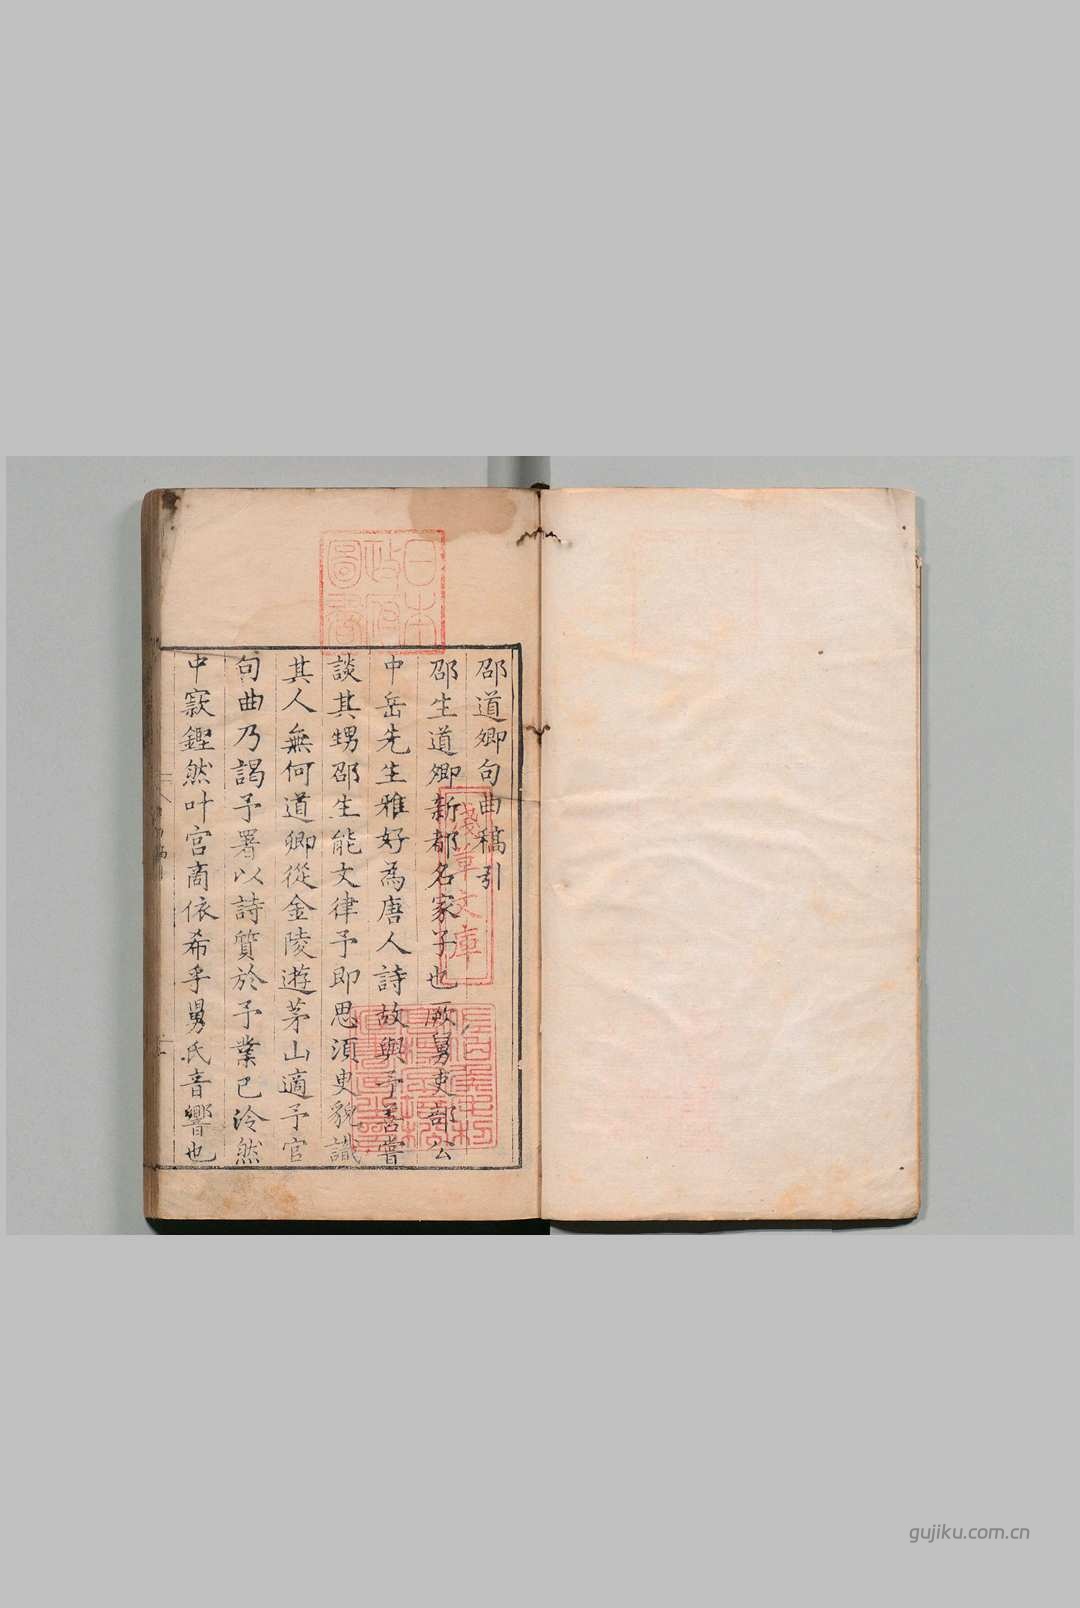 邵道卿句曲稿引
邵生道卿新都名家子也厥舅吏部公
中岳先生雅好為唐人詩故與予善嘗
談其甥邵生能文律予即思須臾貌識
其人無何道卿從金陵遊茅山適予官
句曲乃謁予署以詩質於予業已泠然
中窾鏗然叶宮商依希乎舅氏音響也
日本
政府
圖書
淺草文庫
gujiku.com.cn